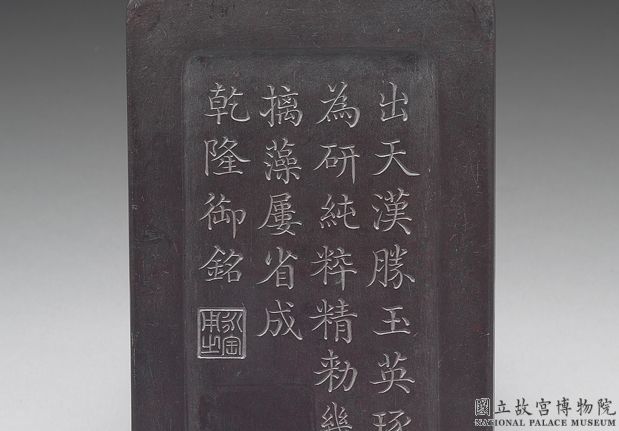 出天漢勝玉英琢
為研純粹精勅幾
摛藻屢省成
乾隆御銘
永寶用之
國立故宮博物院
NATIONAL PALACE MUSEUM